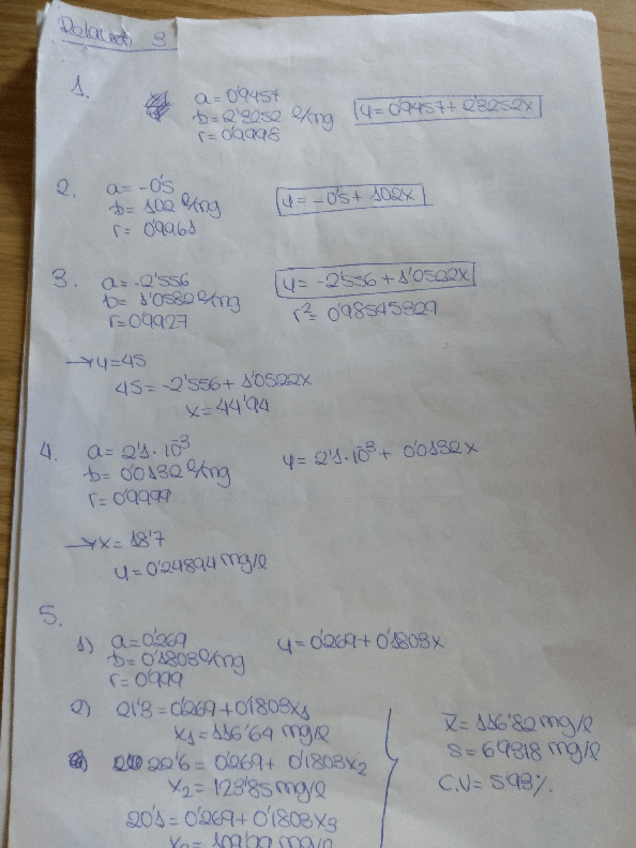 Relación 3
1.
a = 0'9457
b = 2'8252 l/mg
r = 0'9998
y = 0'9457 + 2'8252x
2.
a = -0'5
b = 102 l/mg
r = 0'9961
y = -0'5 + 102x
3.
a = -2'556
b = 1'0582 l/mg
r = 0'9927
y = -2'556 + 1'0522x
r² = 0'98545329
→ y = 45
45 = -2'556 + 1'0522x
x = 44'94
4.
a = 2'1 · 10⁻³
b = 0'0132 l/mg
r = 0'9999
y = 2'1 · 10⁻³ + 0'0132x
→ x = 18'7
y = 0'24894 mg/l
5.
1) a = 0'269
b = 0'1803 l/mg
r = 0'999
y = 0'269 + 0'1803x
2) 21'3 = 0'269 + 0'1803x₁
x₁ = 116'64 mg/l
22'6 = 0'269 + 0'1803x₂
x₂ = 123'85 mg/l
20'1 = 0'269 + 0'1803x₃
x̄ = 116'82 mg/l
s = 6'9318 mg/l
C.V = 5'93%